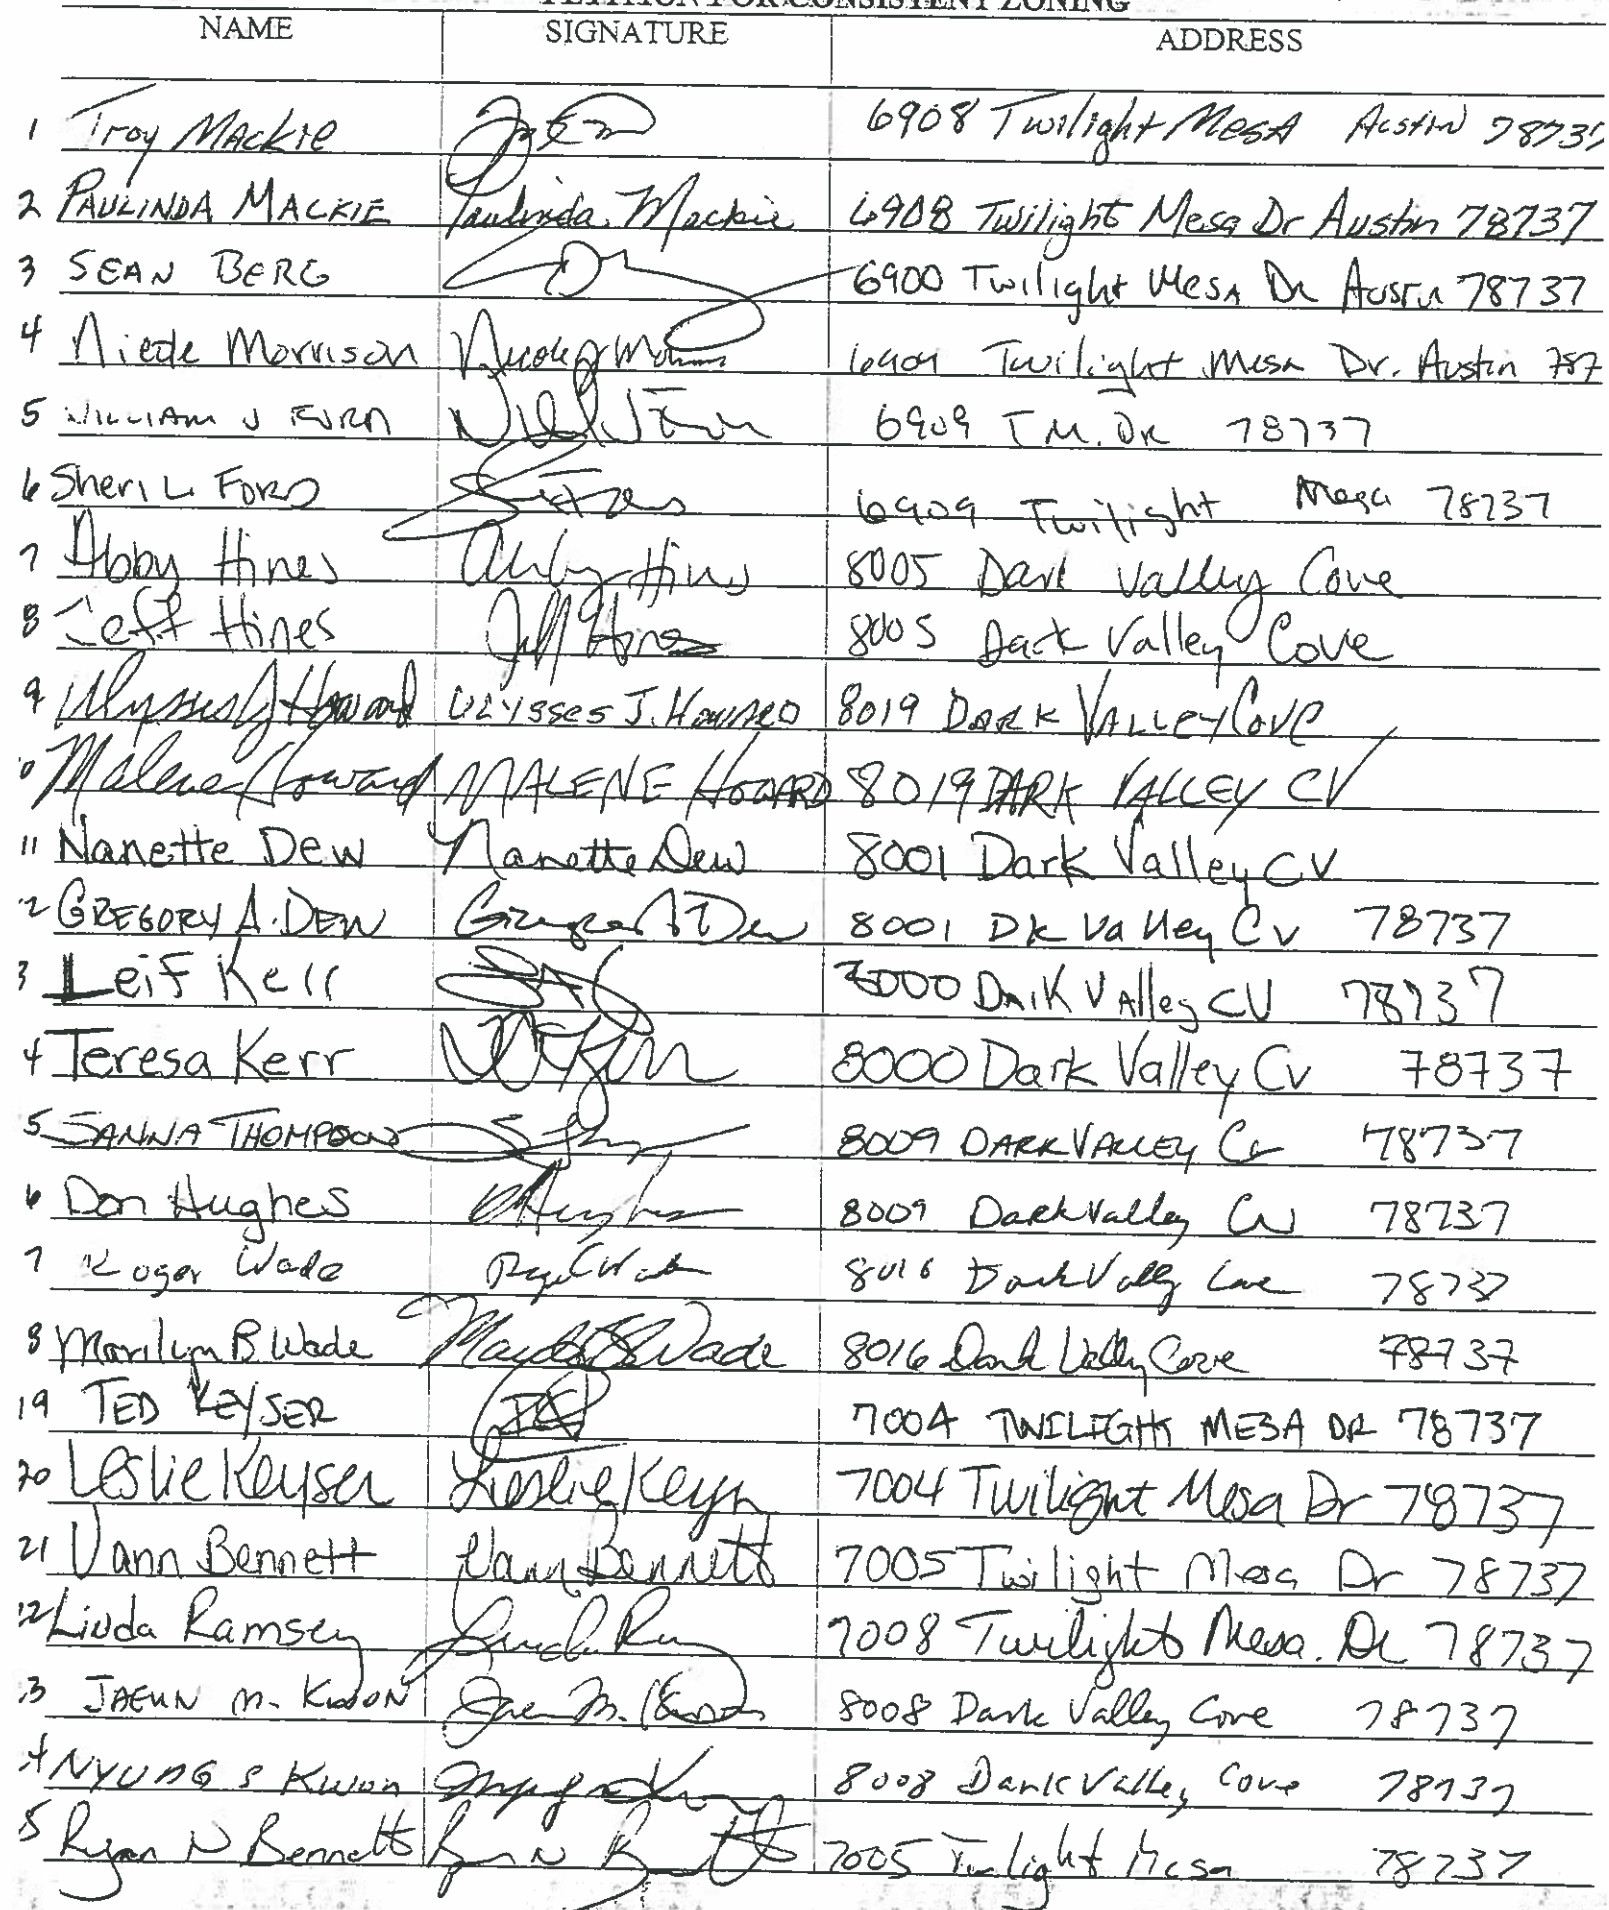 PETITION FOR CONSISTENT ZONING
NAME SIGNATURE ADDRESS
1 Troy Mackie 6908 Twilight Mesa Austin 78737
2 PAULINDA MACKIE Paulinda Mackie 6908 Twilight Mesa Dr Austin 78737
3 SEAN BERG 6900 Twilight Mesa Dr Austin 78737
4 Nicole Morrison 6909 Twilight Mesa Dr. Austin 787
5 WILLIAM J FORD 6909 T.M. DR 78737
6 Sheri L. FORD 6909 Twilight Mesa 78737
7 Abby Hines Abby Hines 8005 Dark Valley Cove
8 Jeff Hines Jeff Hines 8005 Dark Valley Cove
9 Ulysses J Howard ULYSSES J. HOWARD 8019 DARK VALLEY COVE
0 Malene Howard MALENE HOWARD 8019 DARK VALLEY CV
11 Nanette Dew Nanette Dew 8001 Dark Valley CV
2 GREGORY A. DEW Gregory A Dew 8001 DK Valley Cv 78737
3 Leif Kerr 8000 Dark Valley CV 78737
4 Teresa Kerr 8000 Dark Valley Cv 78737
5 SANNA THOMPSON 8009 DARK VALLEY Cv 78737
6 Don Hughes D Hughes 8009 Dark Valley Cv 78737
7 Roger Wade Roger Wade 8016 Dark Valley Cove 78737
8 Marilyn B Wade Marilyn B Wade 8016 Dark Valley Cove 78737
19 TED KEYSER 7004 TWILIGHT MESA DR 78737
20 Leslie Keyser Leslie Keyser 7004 Twilight Mesa Dr 78737
21 Vann Bennett Vann Bennett 7005 Twilight Mesa Dr 78737
22 Linda Ramsey 7008 Twilight Mesa Dr 78737
3 JAEUN M. KWON 8008 Dark Valley Cove 78737
4 NYUNG S Kwon 8008 Dark Valley Cove 78737
5 Ryan N Bennett Ryan N Bennett 7005 Twilight Mesa 78737